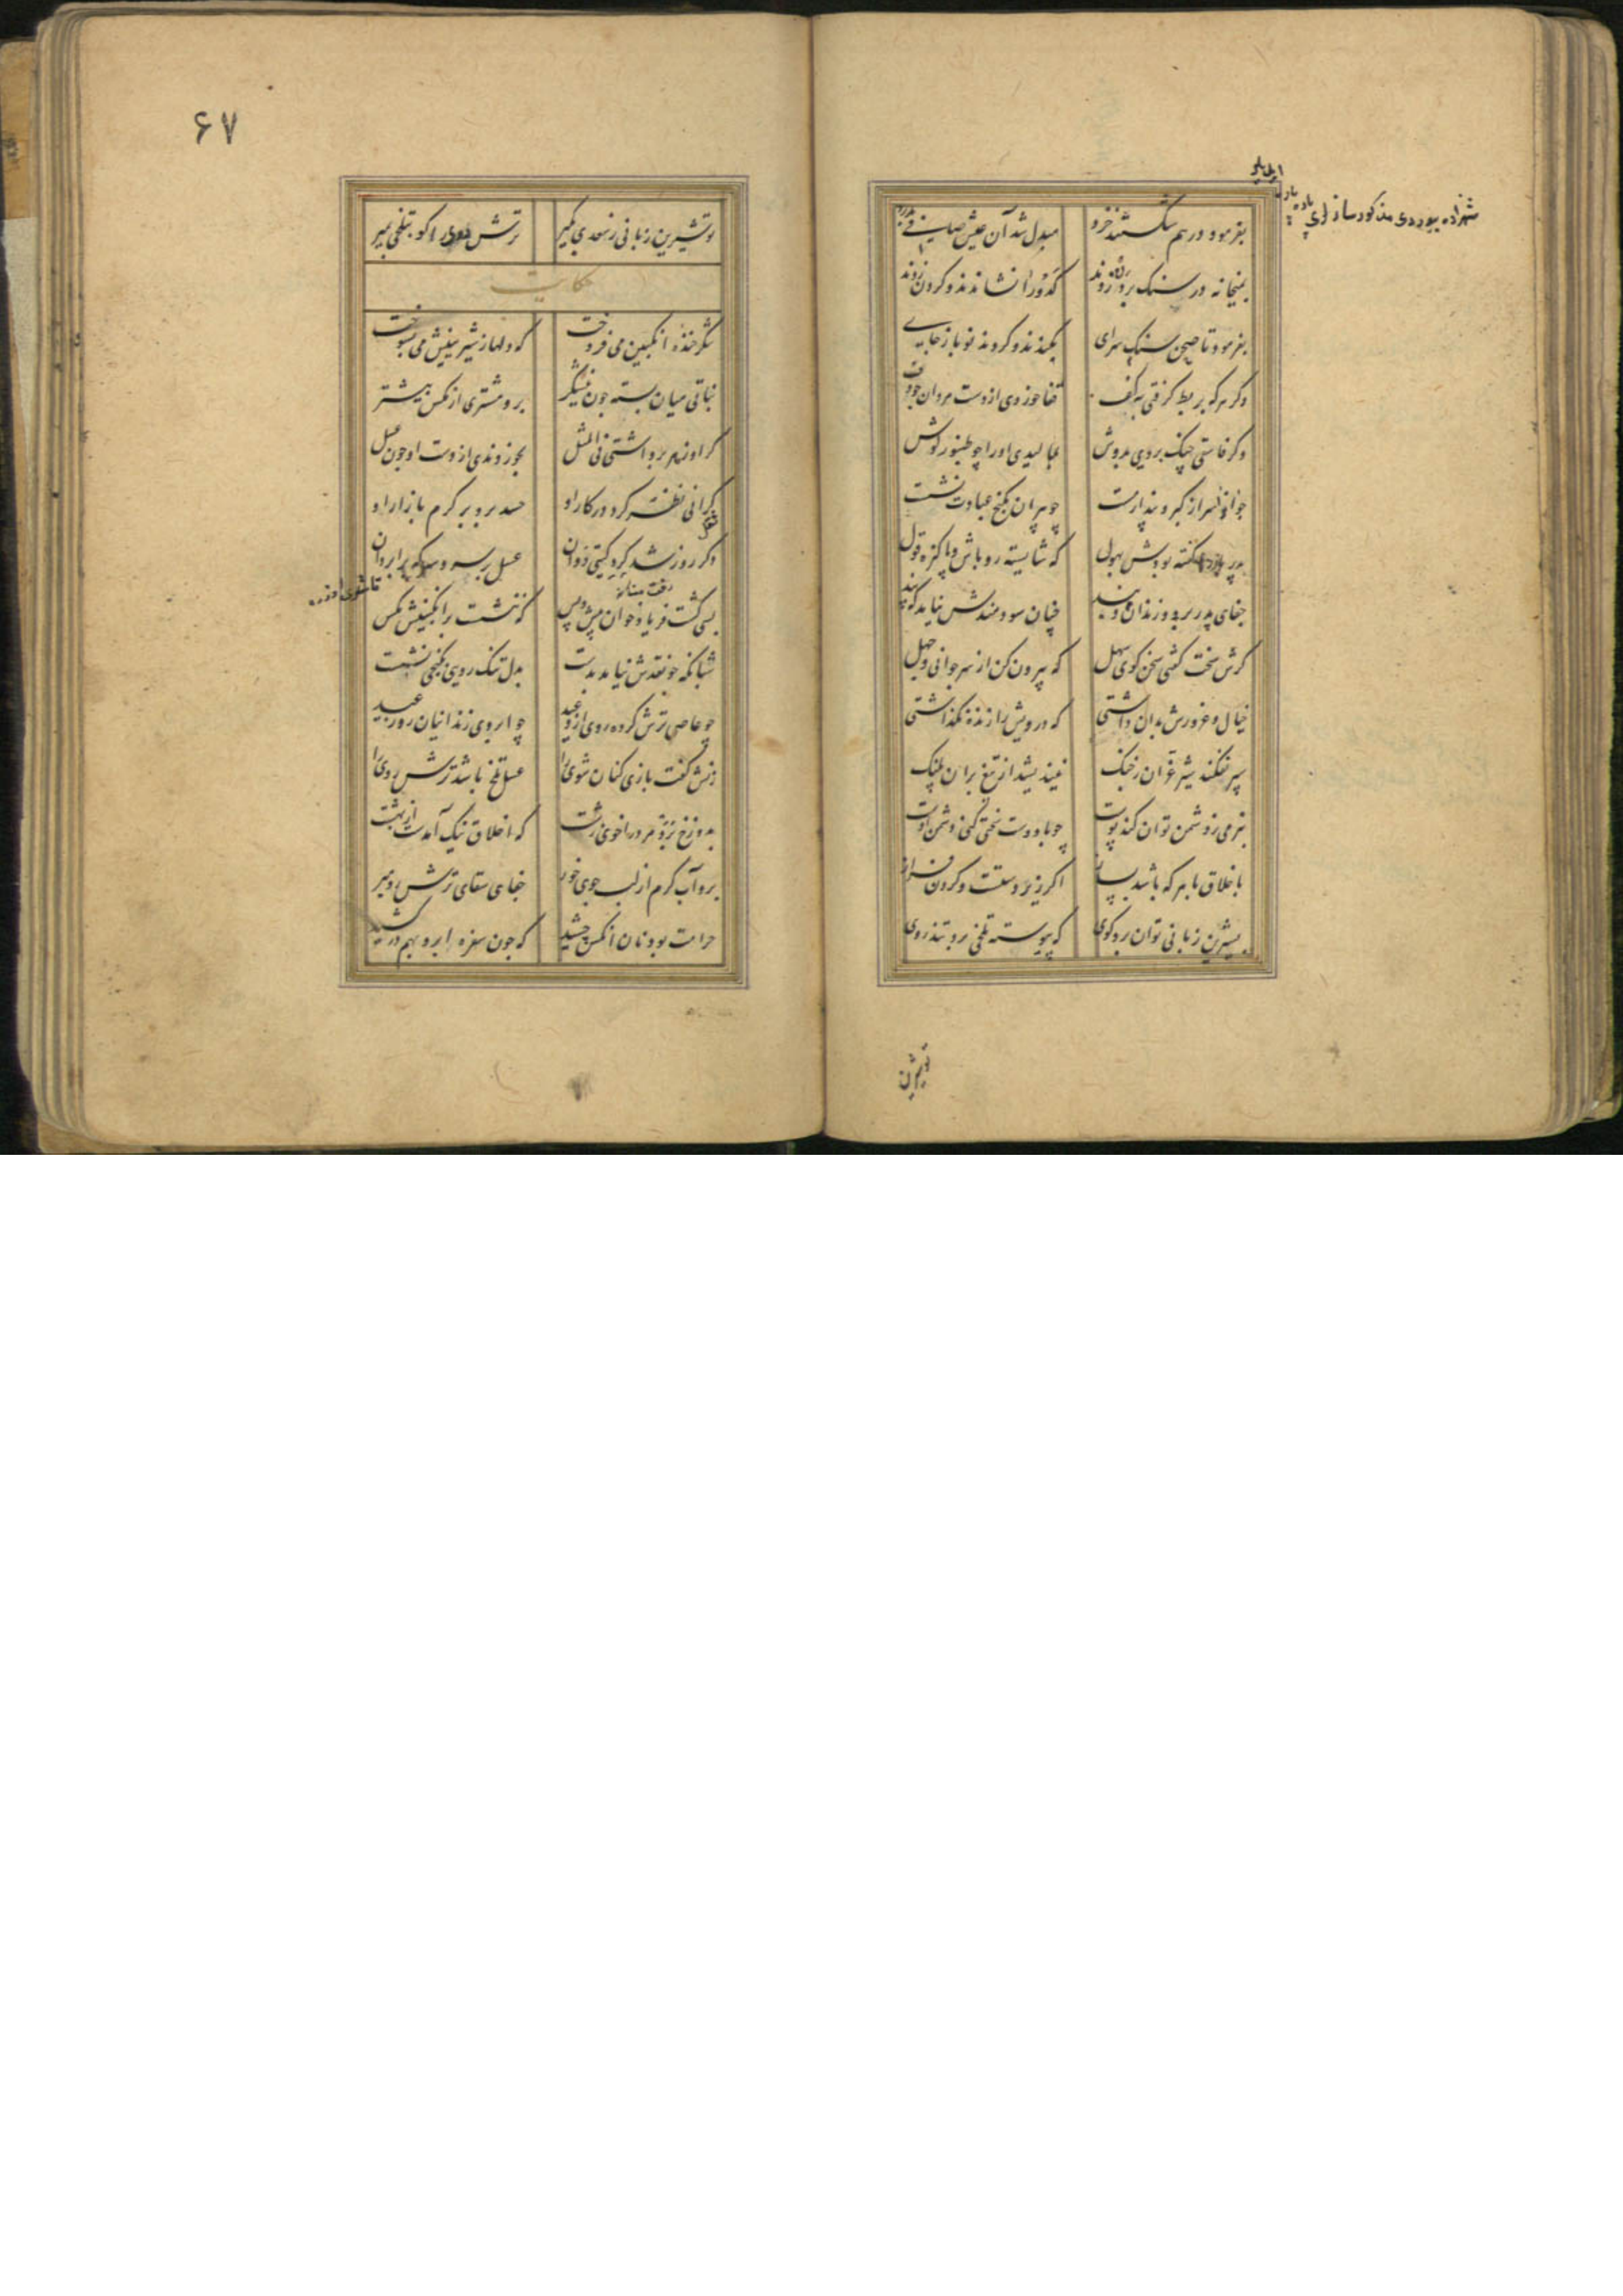 بفرمود و درهم شکستند خرد    مبدل شد آن عیش صافی بدرد
بمیخانه در سنک بر دن زدند    کدو را نشاندند و کردن زدند
بفرمود تا صحن سنک سرای    بکندند و کردند نو باز جای
وکر هرکه بربط کرفتی به کف    قفا خوردی از دست مردان چو دف
وکر فاسقی چنک بردی بدوش    بمالیدی او را چو طنبور کوش
جوان از سر کبر و پندار مست    چو پیران بکنج عبادت نشست
پدر بارها کفته بودش بهول    که شایسته رو باش و پاکیزه قول
جفای پدر برد و زندان و بند    چنان سودمندش نیامد که پند
کرش سخت کفتی سخن کوی سهل    که بیرون کن از سر جوانی و جهل
خیال و غرورش بدان داشتی    که درویش را زنده نکذاشتی
سپر نفکند شیر غران ز جنک    نیندیشد از تیغ بران پلنک
بنرمی ز دشمن توان کند پوست    چو با دوست سختی کنی دشمن اوست
باخلاق با هر که باشد بساز    اکر زیردستست و کردن فراز
بشیرین زبانی توان برد کوی    که پیوسته تلخی برد تندروی
تو شیرین
۶۷
تو شیرین زبانی ز سعدی بکیر    ترش روی را کو بتلخی بمیر
حکایت
شکر خنده انکبین می فروخت    که دلها ز شیرینیش می بسوخت
نباتی میان بسته چون نیشکر    برو مشتری از مکس بیشتر
کر او زهر برداشتی فی المثل    بخوردندی از دست او چون عسل
کرانی نظر کرد در کار او    حسد برد بر کرم بازار او
دکر روز شد کرد کیتی دوان    عسل بر سر و سرکه بر ابروان
بسی کشت فریاد خوان پیش و پس    که ننشست بر انکبینش مکس
شبانکه چو نقدش نیامد بدست    بدل تنک رویی بکنجی نشست
چو عاصی ترش کرده روی از وعید    چو ابروی زندانیان روز عید
زنش کفت بازی کنان شوی را    عسل تلخ باشد ترش روی را
بدوزخ برد مرد را خوی زشت    که اخلاق نیک آمدست از بهشت
برو آب کرم از لب جوی خور    نه جلاب سرد ترش روی خور
حرامت بود نان آنکس چشید    که چون سفره ابرو بهم در کشید